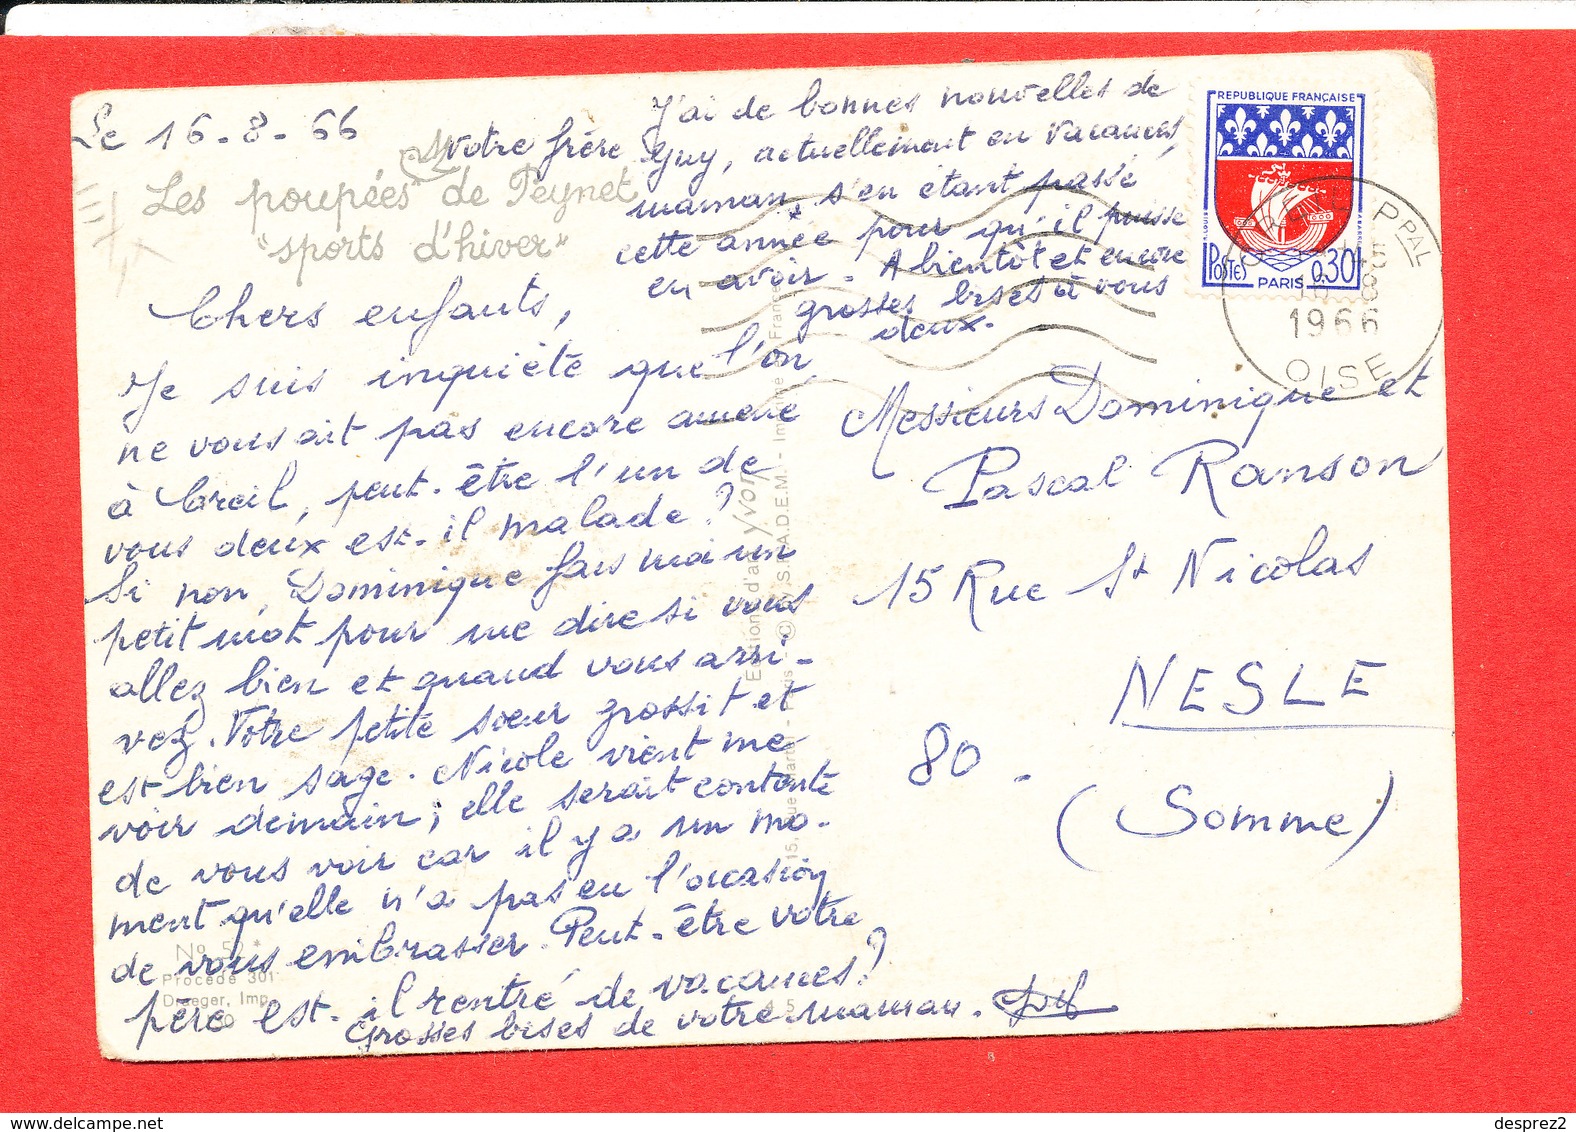 Le 16-8-66
Les poupées de Peynet
"sports d'hiver"
Chers enfants,
Je suis inquiète que l'on
ne vous ait pas encore amené
à Creil, peut-être l'un de
vous deux est-il malade?
Si non, Dominique fais moi un
petit mot pour me dire si vous
allez bien et quand vous arri-
vez. Votre petite sœur grossit et
est bien sage. Nicole vient me
voir demain; elle serait contente
de vous voir car il y a un mo-
ment qu'elle n'a pas eu l'occasion
de vous embrasser. Peut-être votre
père est-il rentré de vacances?
Grosses bises de votre maman.
J'ai de bonnes nouvelles de
votre frère Guy, actuellement en vacances,
maman s'en étant passé
cette année pour qu'il puisse
en avoir. A bientôt et encore
grosses bises à vous
deux.
REPUBLIQUE FRANÇAISE
POSTES 0,30
PARIS
PPAL
1966
OISE
Messieurs Dominique et
Pascal Ranson
15 Rue St Nicolas
NESLE
80 -
(Somme)
Editions d'art yvon
No 52 *
Procédé 301
Draeger, Imp.
desprez2